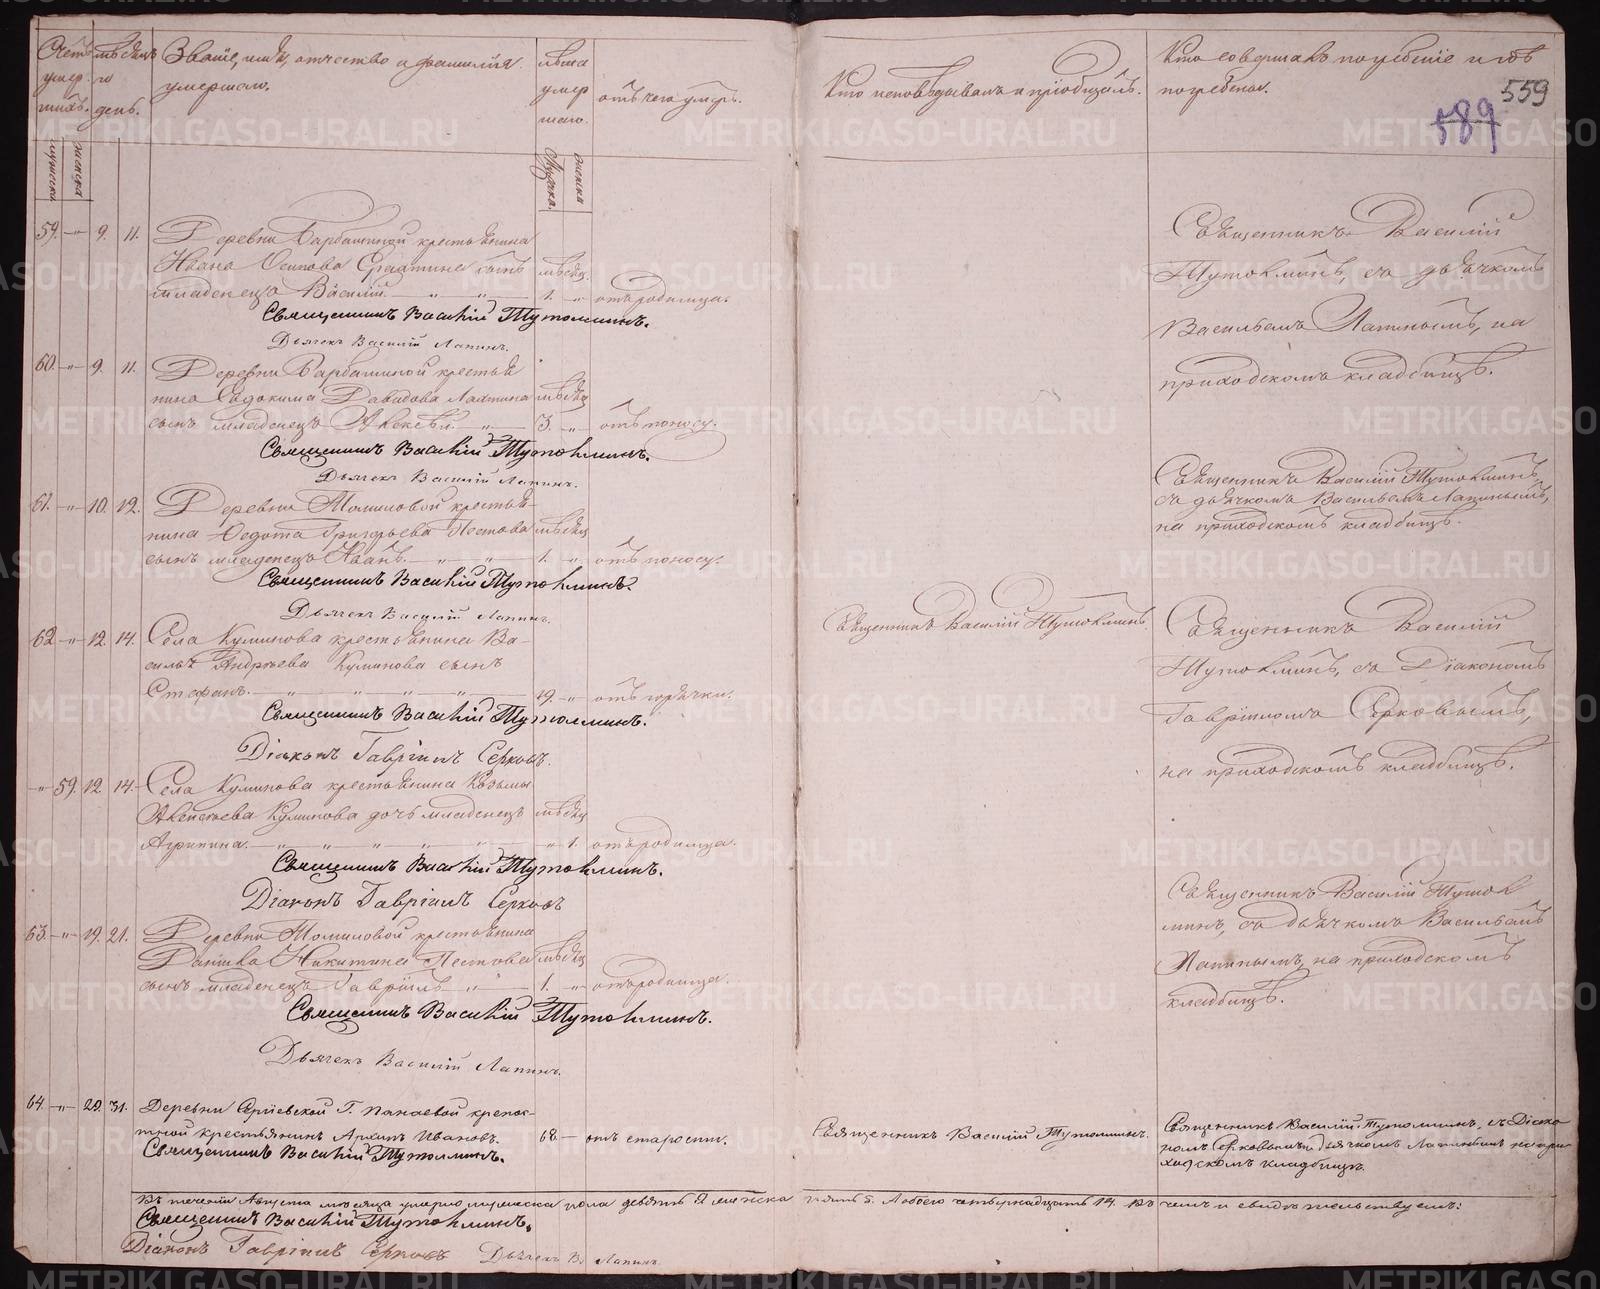 Счетъ умер-шихъ.
мѣсяцъ и день.
Званіе, имя, отчество и фамилія умершаго.
лѣта умершаго.
отъ чего умеръ.
Кто исповѣдывалъ и пріобщалъ.
Кто совершалъ погребеніе и гдѣ погребены.
559
589
мужеска
женска
Мужска.
женска
59. " 9. 11. Деревни Барбашиной крестьянина
Ивана Осипова сынъ мѣсяц.
младенецъ Василій 1. " отъ родимца.
Священникъ Василій Тутолминъ.
Дьячекъ Василій Лапинъ.
Священникъ Василій
Тутолминъ съ дьячкомъ
Васильемъ Лапинымъ, на
приходскомъ кладбищѣ.
60. " 9. 11. Деревни Барбашиной крестья
нина Евдокима Давыдова мѣсяц
сынъ младенецъ Алексѣй 3. " отъ поносу.
Священникъ Василій Тутолминъ.
Дьячекъ Василій Лапинъ.
Священникъ Василій Тутолминъ,
съ дьячкомъ Васильемъ Лапинымъ,
на приходскомъ кладбищѣ.
61. " 10. 12. Деревни Томиловой крестья-
нина Федота Григорьева Пестова мѣсяц
сынъ младенецъ Иванъ. 1. " отъ поносу.
Священникъ Василій Тутолминъ.
Дьячекъ Василій Лапинъ.
62. " 12. 14. Села Куминова крестьянина Ва-
силья Андреева Куминова сынъ
Стефанъ. 19. " отъ горячки.
Священникъ Василій Тутолминъ.
Діаконъ Гавріилъ Серковъ.
Священникъ Василій Тутолминъ
Священникъ Василій
Тутолминъ, съ Діакономъ
Гавріиломъ Серковымъ,
на приходскомъ кладбищѣ.
" 59. 12. 14. Села Куминова крестьянина Козьмы
Алексѣева Куминова дочь младенецъ мѣсяц
Агрипина. " 1. отъ родимца.
Священникъ Василій Тутолминъ.
Діаконъ Гавріилъ Серковъ
63. " 19. 21. Деревни Томиловой крестьянина
Данила Никитина Пестова мѣсяц
сынъ младенецъ Гавріилъ " 1. " отъ родимца.
Священникъ Василій Тутолминъ.
Дьячекъ Василій Лапинъ.
Священникъ Василій Тутол
минъ, съ дьячкомъ Васильемъ
Лапинымъ, на приходскомъ
кладбищѣ.
64. " 29. 31. Деревни Г. Панаевой крепос-
тной крестьянинъ Архипъ Ивановъ. 68. — отъ старости.
Священникъ Василій Тутолминъ.
Священникъ Василій Тутолминъ.
Священникъ Василій Тутолминъ, съ Діако-
номъ Серковымъ и дьячкомъ Лапинымъ на при-
ходскомъ кладбищѣ.
Въ теченіи Августа мѣсяца умерло мужеска пола девять 9 женска пять 5. Обоего четырнадцать 14. Въ чемъ и свидѣтельствуемъ:
Священникъ Василій Тутолминъ.
Діаконъ Гавріилъ Серковъ Дьячекъ В. Лапинъ
METRIKI.GASO-URAL.RU